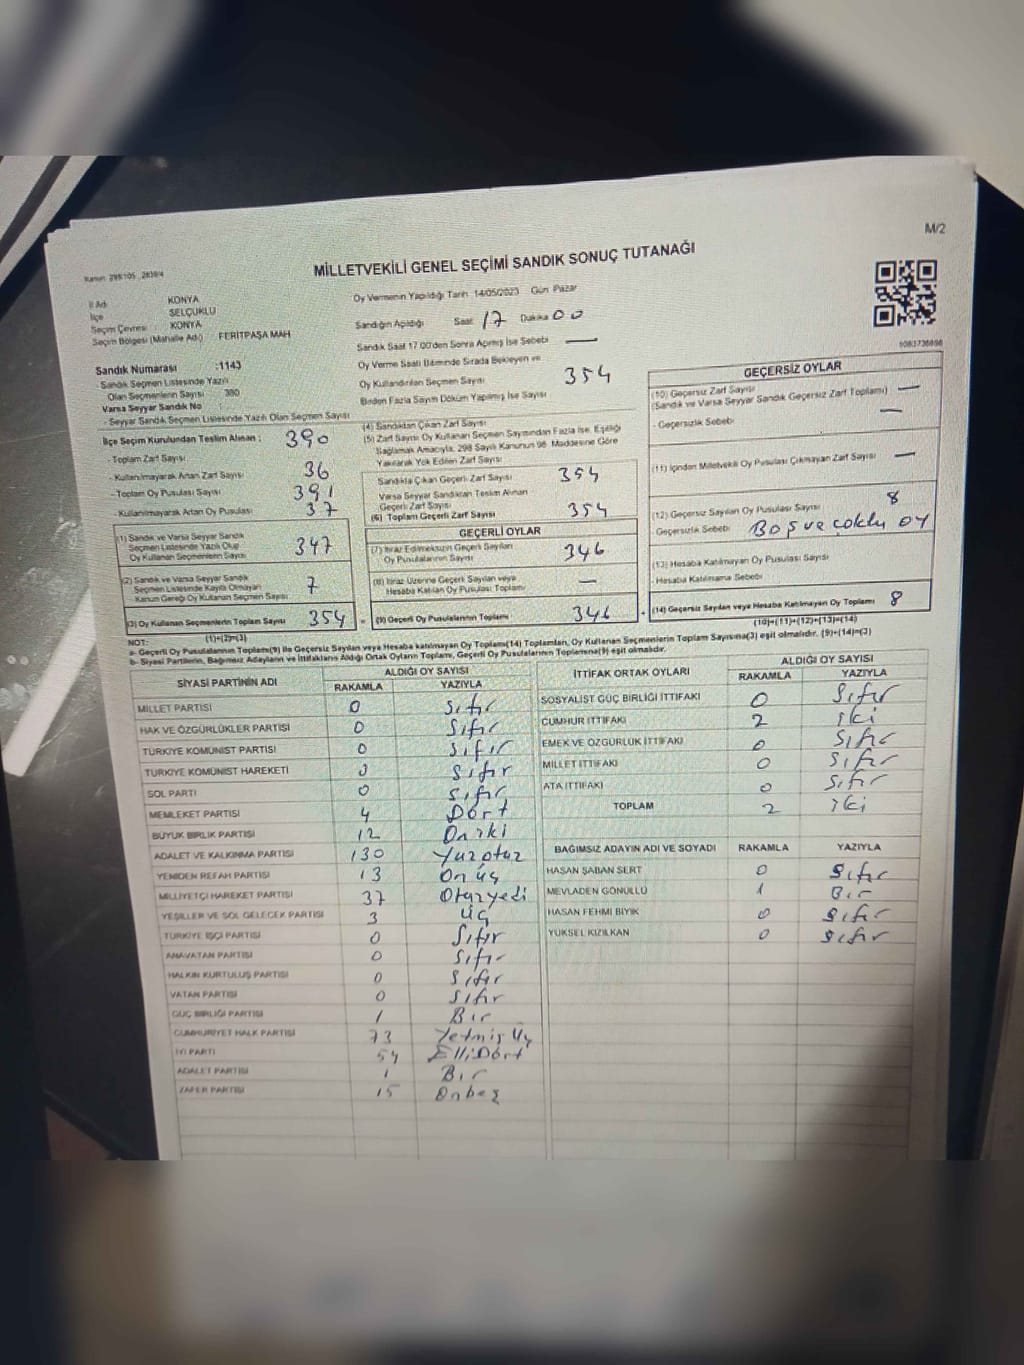 M/2
MİLLETVEKİLİ GENEL SEÇİMİ SANDIK SONUÇ TUTANAĞI
Kanun: 298/105 , 2839/4
İl Adı KONYA
İlçe SELÇUKLU
Seçim Çevresi KONYA
Seçim Bölgesi (Mahalle Adı) FERİTPAŞA MAH
Sandık Numarası :1143
- Sandık Seçmen Listesinde Yazılı
Olan Seçmenlerin Sayısı : 380
Varsa Seyyar Sandık No
- Seyyar Sandık Seçmen Listesinde Yazılı Olan Seçmen Sayısı
İlçe Seçim Kurulundan Teslim Alınan : 390
- Toplam Zarf Sayısı
- Kullanılmayarak Artan Zarf Sayısı 36
- Toplam Oy Pusulası Sayısı 391
- Kullanılmayarak Artan Oy Pusulası 37
(1) Sandık ve Varsa Seyyar Sandık
Seçmen Listesinde Yazılı Olup
Oy Kullanan Seçmenlerin Sayısı 347
(2) Sandık ve Varsa Seyyar Sandık
Seçmen Listesinde Kayıtlı Olmayan
Kanun Gereği Oy Kullanan Seçmen Sayısı 7
(3) Oy Kullanan Seçmenlerin Toplam Sayısı 354
(1)+(2)=(3)
Oy Vermenin Yapıldığı Tarih 14/05/2023 Gün Pazar
Sandığın Açıldığı Saat 17 Dakika 00
Sandık Saat 17.00'den Sonra Açılmış İse Sebebi —
Oy Verme Saati Bitiminde Sırada Bekleyen ve
Oy Kullandırılan Seçmen Sayısı 354
Birden Fazla Sayım Döküm Yapılmış İse Sayısı
(4) Sandıktan Çıkan Zarf Sayısı
(5) Zarf Sayısı Oy Kullanan Seçmen Sayısından Fazla İse, Eşitliği
Sağlamak Amacıyla, 298 Sayılı Kanunun 98. Maddesine Göre
Yakılarak Yok Edilen Zarf Sayısı
Sandıkta Çıkan Geçerli Zarf Sayısı 354
Varsa Seyyar Sandıktan Teslim Alınan
Geçerli Zarf Sayısı
(6) Toplam Geçerli Zarf Sayısı 354
GEÇERLİ OYLAR
(7) İtiraz Edilmeksizin Geçerli Sayılan
Oy Pusulalarının Sayısı 346
(8) İtiraz Üzerine Geçerli Sayılan veya
Hesaba Katılan Oy Pusulası Toplamı —
(9) Geçerli Oy Pusulalarının Toplamı 346
1083736898
GEÇERSİZ OYLAR
(10) Geçersiz Zarf Sayısı
(Sandık ve Varsa Seyyar Sandık Geçersiz Zarf Toplamı) —
- Geçersizlik Sebebi —
(11) İçinden Milletvekili Oy Pusulası Çıkmayan Zarf Sayısı —
(12) Geçersiz Sayılan Oy Pusulası Sayısı 8
Geçersizlik Sebebi Boş ve çoklu oy
(13) Hesaba Katılmayan Oy Pusulası Sayısı
- Hesaba Katılmama Sebebi
(14) Geçersiz Sayılan veya Hesaba Katılmayan Oy Toplamı 8
(10)+(11)+(12)+(13)=(14)
NOT:
a- Geçerli Oy Pusulalarının Toplamı(9) ile Geçersiz Sayılan veya Hesaba katılmayan Oy Toplamı(14) Toplamları, Oy Kullanan Seçmenlerin Toplam Sayısına(3) eşit olmalıdır. (9)+(14)=(3)
b- Siyasi Partilerin, Bağımsız Adayların ve İttifakların Aldığı Ortak Oyların Toplamı, Geçerli Oy Pusulalarının Toplamına(9) eşit olmalıdır.
SİYASİ PARTİNİN ADI ALDIĞI OY SAYISI
RAKAMLA YAZIYLA
MİLLET PARTİSİ 0 Sıfır
HAK VE ÖZGÜRLÜKLER PARTİSİ 0 Sıfır
TÜRKİYE KOMÜNİST PARTİSİ 0 Sıfır
TÜRKİYE KOMÜNİST HAREKETİ 0 Sıfır
SOL PARTİ 0 Sıfır
MEMLEKET PARTİSİ 4 Dört
BÜYÜK BİRLİK PARTİSİ 12 Oniki
ADALET VE KALKINMA PARTİSİ 130 Yüzotuz
YENİDEN REFAH PARTİSİ 13 Onüç
MİLLİYETÇİ HAREKET PARTİSİ 37 Otuzyedi
YEŞİLLER VE SOL GELECEK PARTİSİ 3 üç
TÜRKİYE İŞÇİ PARTİSİ 0 Sıfır
ANAVATAN PARTİSİ 0 Sıfır
HALKIN KURTULUŞ PARTİSİ 0 Sıfır
VATAN PARTİSİ 0 Sıfır
GÜÇ BİRLİĞİ PARTİSİ 1 Bir
CUMHURİYET HALK PARTİSİ 73 Yetmiş üç
İYİ PARTİ 54 Elli Dört
ADALET PARTİSİ 1 Bir
ZAFER PARTİSİ 15 Onbeş
İTTİFAK ORTAK OYLARI ALDIĞI OY SAYISI
RAKAMLA YAZIYLA
SOSYALİST GÜÇ BİRLİĞİ İTTİFAKI 0 Sıfır
CUMHUR İTTİFAKI 2 iki
EMEK VE ÖZGÜRLÜK İTTİFAKI 0 Sıfır
MİLLET İTTİFAKI 0 Sıfır
ATA İTTİFAKI 0 Sıfır
TOPLAM 2 iki
BAĞIMSIZ ADAYIN ADI VE SOYADI RAKAMLA YAZIYLA
HASAN ŞABAN SERT 0 Sıfır
MEVLADEN GÖNÜLLÜ 1 Bir
HASAN FEHMİ BIYIK 0 Sıfır
YÜKSEL KIZILKAN 0 Sıfır